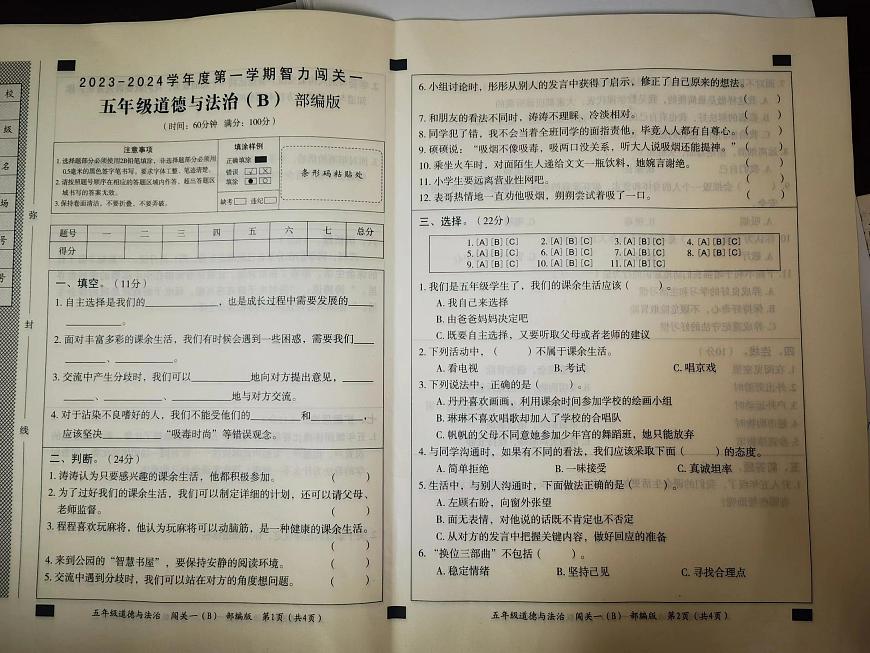 校
级
名
场
号
号
弥
封
线
2023-2024学年度第一学期智力闯关一
五年级道德与法治（B） 部编版
（时间：60分钟 满分：100分）
注意事项
1.选择题部分必须使用2B铅笔填涂，非选择题部分必须用
0.5毫米的黑色签字笔书写，要求字体工整、笔迹清楚。
2.请按照题号顺序在相应的答题区域内作答，超出答题区
域书写的答案无效。
3.保持卷面清洁，不要折叠、不要弄破。
填涂样例
正确填涂
错误
填涂
缺考 违纪
条形码粘贴处
题号 一 二 三 四 五 六 七 总分
得分
一、填空。（11分）
1.自主选择是我们的____________，也是成长过程中需要发展的____
__________。
2.面对丰富多彩的课余生活，我们有时候会遇到一些困惑，需要我们____
______、__________。
3.交流中产生分歧时，我们可以__________地向对方提出意见，______
______、__________、__________地与对方交流。
4.对于沾染不良嗜好的人，我们不能受他们的________和________，
应该坚决__________“吸毒时尚”等错误观念。
二、判断。（24分）
1.涛涛认为只要感兴趣的课余生活，他都积极参加。 （ ）
2.为了过好我们的课余生活，我们可以制定详细的计划，还可以请父母、
老师监督。 （ ）
3.程程喜欢玩麻将，他认为玩麻将可以动脑筋，是一种健康的课余活。
（ ）
4.来到公园的“智慧书屋”，要保持安静的阅读环境。 （ ）
5.交流中遇到分歧时，我们可以站在对方的角度想问题。 （ ）
五年级道德与法治 闯关一（B） 部编版 第1页（共4页）
6.小组讨论时，彤彤从别人的发言中获得了启示，修正了自己原来的想法。
（ ）
7.和朋友的看法不同时，涛涛不理睬、冷淡相对。 （ ）
8.同学犯了错，我不会当着全班同学的面指责他，毕竟人人都有自尊心。（ ）
9.硕硕说：“吸烟不像吸毒，吸两口没关系，听大人说吸烟还能提神。”（ ）
10.乘坐火车时，对面陌生人递给文文一瓶饮料，她婉言谢绝。 （ ）
11.小学生要远离营业性网吧。 （ ）
12.表哥热情地一直劝他吸烟，朔朔尝试着吸了一口。 （ ）
三、选择。（22分）
1.[A][B][C] 2.[A][B][C] 3.[A][B][C] 4.[A][B][C]
5.[A][B][C] 6.[A][B][C] 7.[A][B][C] 8.[A][B][C]
9.[A][B][C] 10.[A][B][C] 11.[A][B][C]
1.我们是五年级学生了，我们的课余生活应该（ ）。
A.我自己来选择
B.由爸爸妈妈决定吧
C.既要自主选择，又要听取父母或者老师的建议
2.下列活动中，（ ）不属于课余生活。
A.看电视 B.考试 C.唱京戏
3.下列说法中，正确的是（ ）。
A.丹丹喜欢画画，利用课余时间参加学校的绘画小组
B.琳琳不喜欢唱歌却加入了学校的合唱队
C.帆帆的父母不同意她参加少年宫的舞蹈班，她只能放弃
4.与同学沟通时，如果有不同的看法，我们应该采取下面（ ）的态度。
A.简单拒绝 B.一味接受 C.真诚坦率
5.生活中，与别人沟通时，下面做法正确的是（ ）。
A.左顾右盼，向窗外张望
B.面无表情，对他说的话既不肯定也不否定
C.从对方的发言中把握关键内容，做好回应的准备
6.“换位三部曲”不包括（ ）。
A.稳定情绪 B.坚持己见 C.寻找合理点
五年级道德与法治 闯关一（B） 部编版 第2页（共4页）